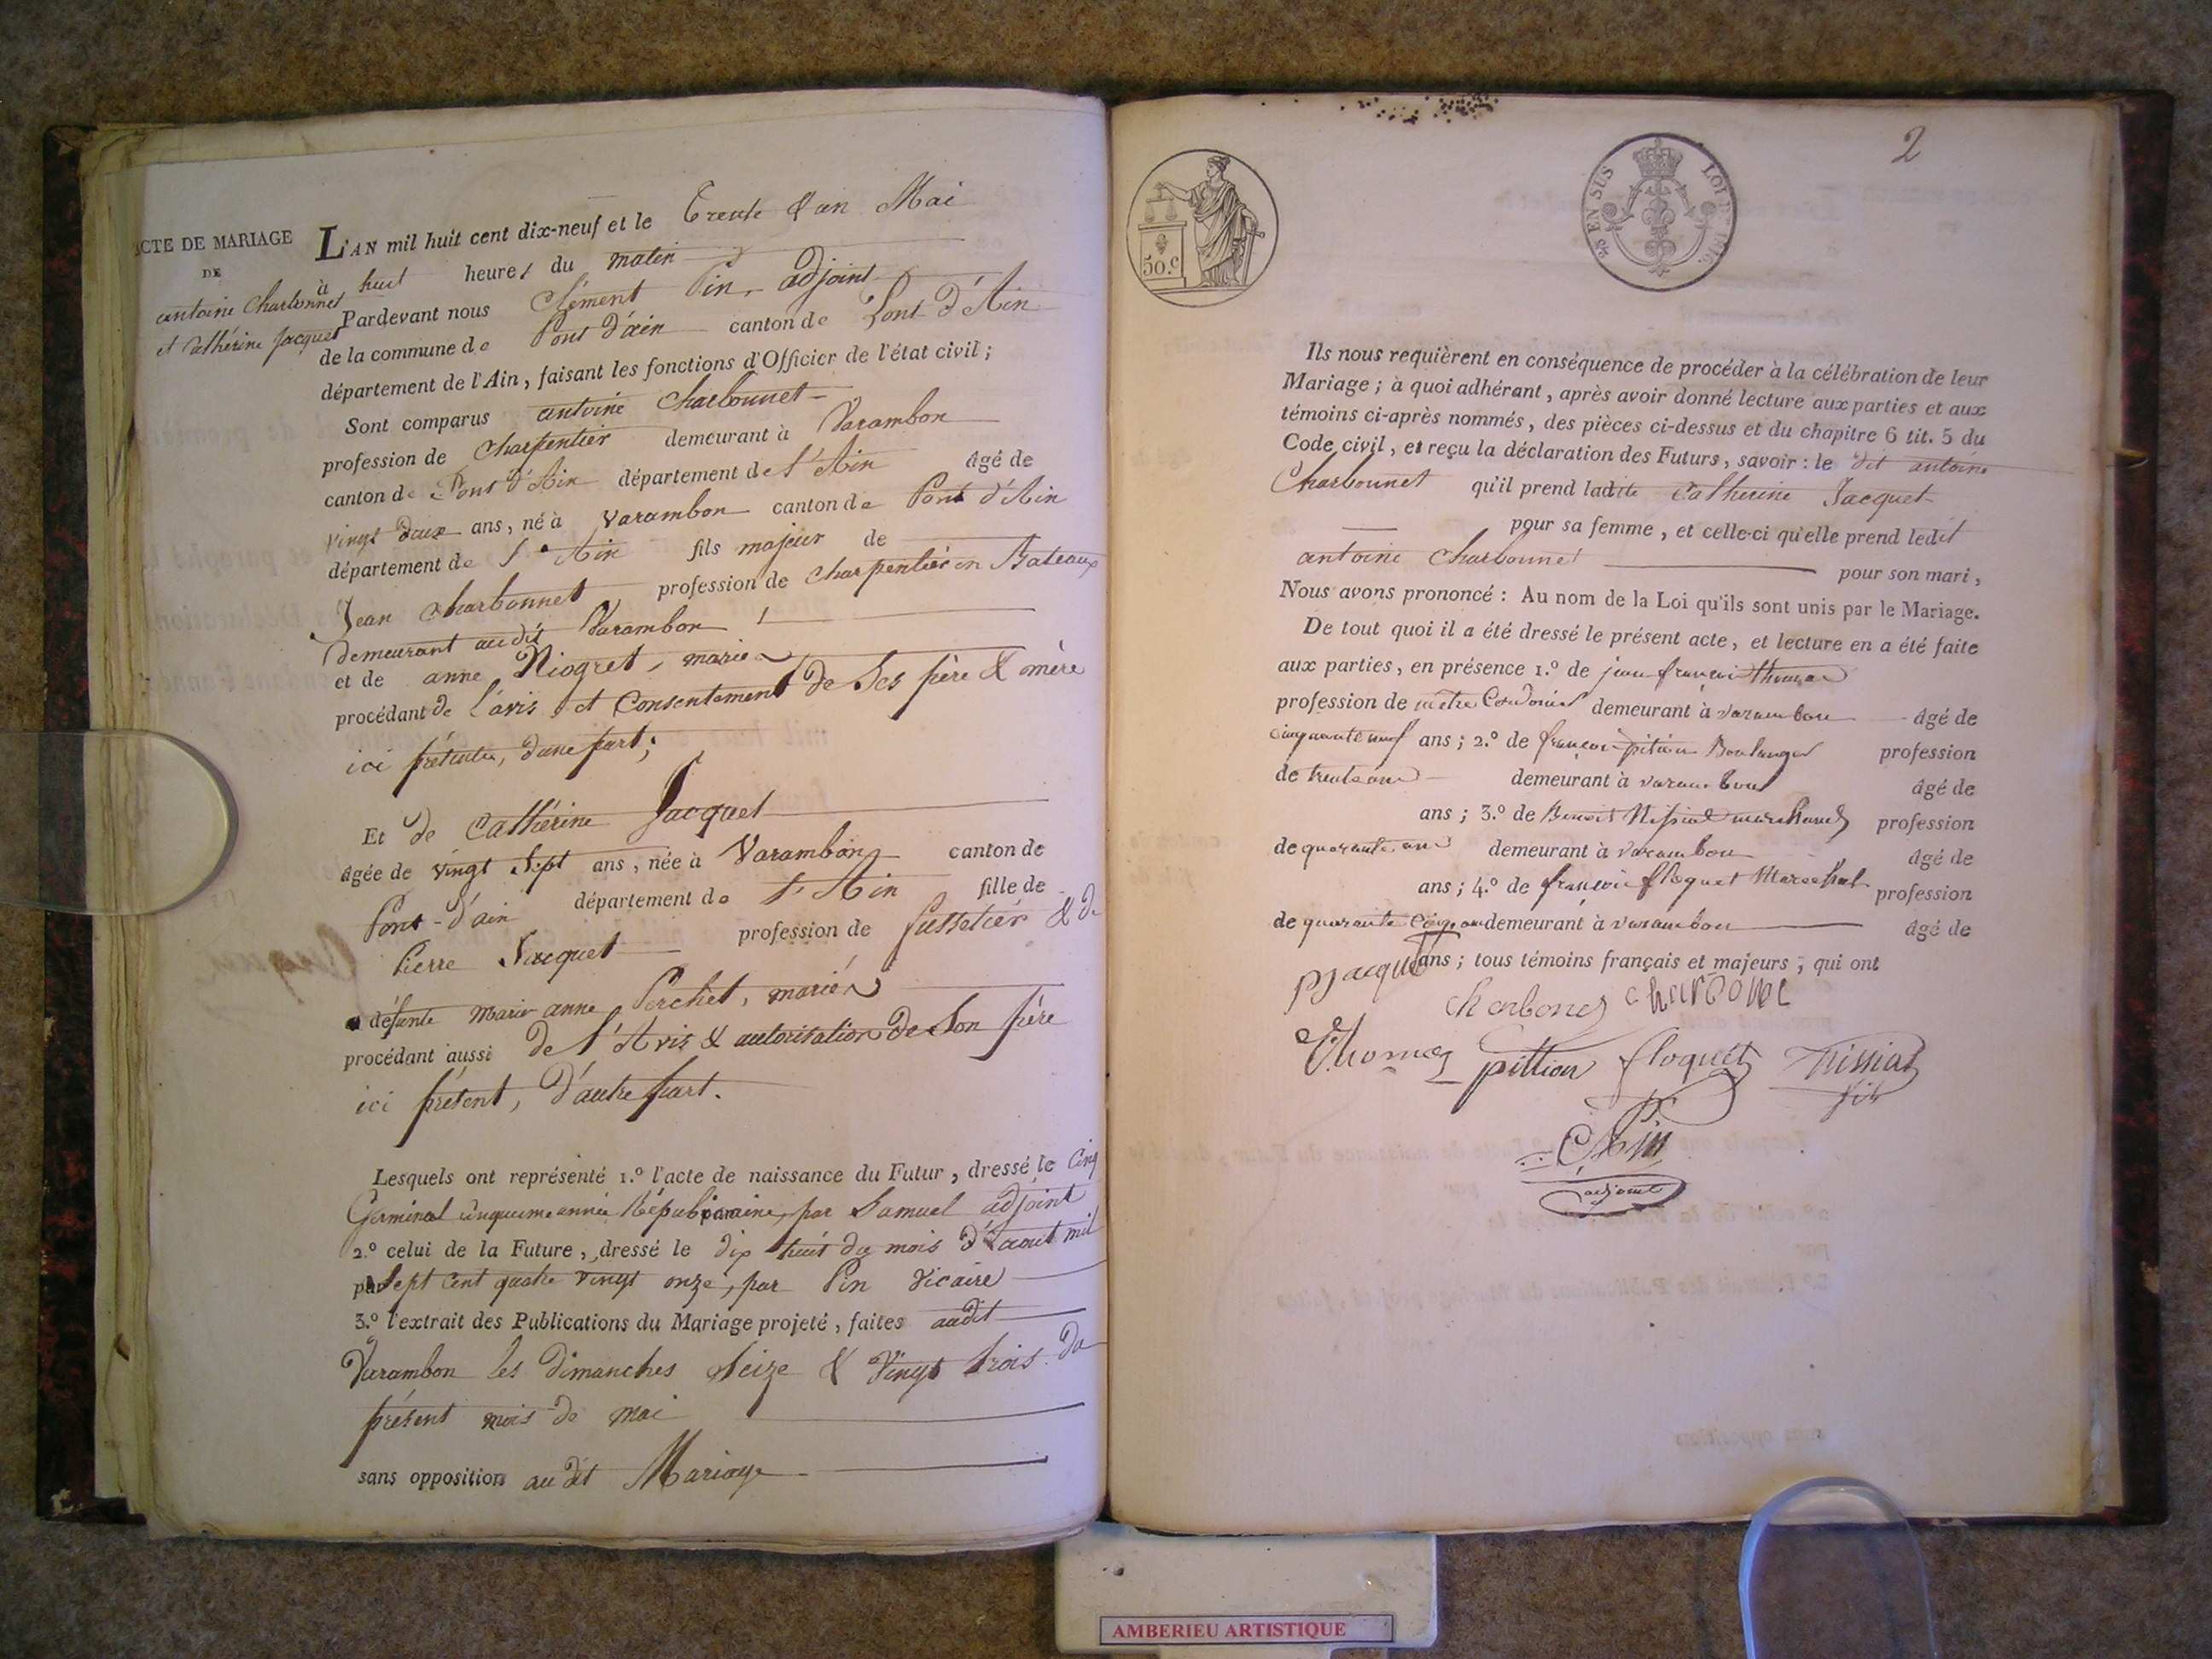 ACTE DE MARIAGE
DE
antoine Charbonnet
et Cathérine Jacquet
L'AN mil huit cent dix-neuf et le Trente & un Mai
à huit heures du matin
Pardevant nous Clément Pin, adjoint
de la commune de Pont d'ain canton de Pont d'Ain
département de l'Ain, faisant les fonctions d'Officier de l'état civil;
Sont comparus antoine Charbonnet
profession de Charpentier demeurant à Varambon
canton de Pont d'Ain département de l'Ain âgé de
vingt deux ans, né à Varambon canton de Pont d'Ain
département de l'Ain fils majeur de
Jean Charbonnet profession de Charpentier en Bateaux
demeurant audit Varambon
et de anne Niogret, mariés
procédant de l'avis et Consentement de Ses père & mère
ici présents, d'une part;
Et de Cathérine Jacquet
âgée de vingt Sept ans, née à Varambon canton de
Pont-d'ain département de l'Ain fille de
Pierre Jacquet profession de & de
défunte Marie anne Perchet, mariés
procédant aussi de l'Avis & autorisation de Son père
ici présent, d'autre part.
Lesquels ont représenté 1.º l'acte de naissance du Futur, dressé le Cinq
Germinal cinquieme année Républicaine, par Samuel adjoint
2.º celui de la Future, dressé le dix huit du mois d'aout mil
par Sept Cent quatre vingt onze, par Pin vicaire
3.º l'extrait des Publications du Mariage projeté, faites audit
Varambon les dimanches Seize & Vingt trois du
présent mois de mai
sans opposition au dit Mariage
2
50.c
EN SUS
LOI DE 1816.
Ils nous requièrent en conséquence de procéder à la célébration de leur
Mariage; à quoi adhérant, après avoir donné lecture aux parties et aux
témoins ci-après nommés, des pièces ci-dessus et du chapitre 6 tit. 5 du
Code civil, et reçu la déclaration des Futurs, savoir: le dit antoine
Charbonnet qu'il prend ladite Catherine Jacquet
pour sa femme, et celle-ci qu'elle prend ledit
antoine Charbonnet pour son mari,
Nous avons prononcé: Au nom de la Loi qu'ils sont unis par le Mariage.
De tout quoi il a été dressé le présent acte, et lecture en a été faite
aux parties, en présence 1.º de jean françois thomas
profession de demeurant à varambon âgé de
cinquante neuf ans; 2.º de françois pition Boulanger profession
de trente ans demeurant à varambon âgé de
ans; 3.º de Benoit Nissiat marchand profession
de quarante ans demeurant à varambon âgé de
ans; 4.º de françois floquet Marechal profession
de quarante Cinq ans demeurant à varambon âgé de
ans; tous témoins français et majeurs, qui ont
pjacquet
charbonet charbone
Thomas pittion floquet Nissiat
fils
C Pin
adjoint
AMBERIEU ARTISTIQUE